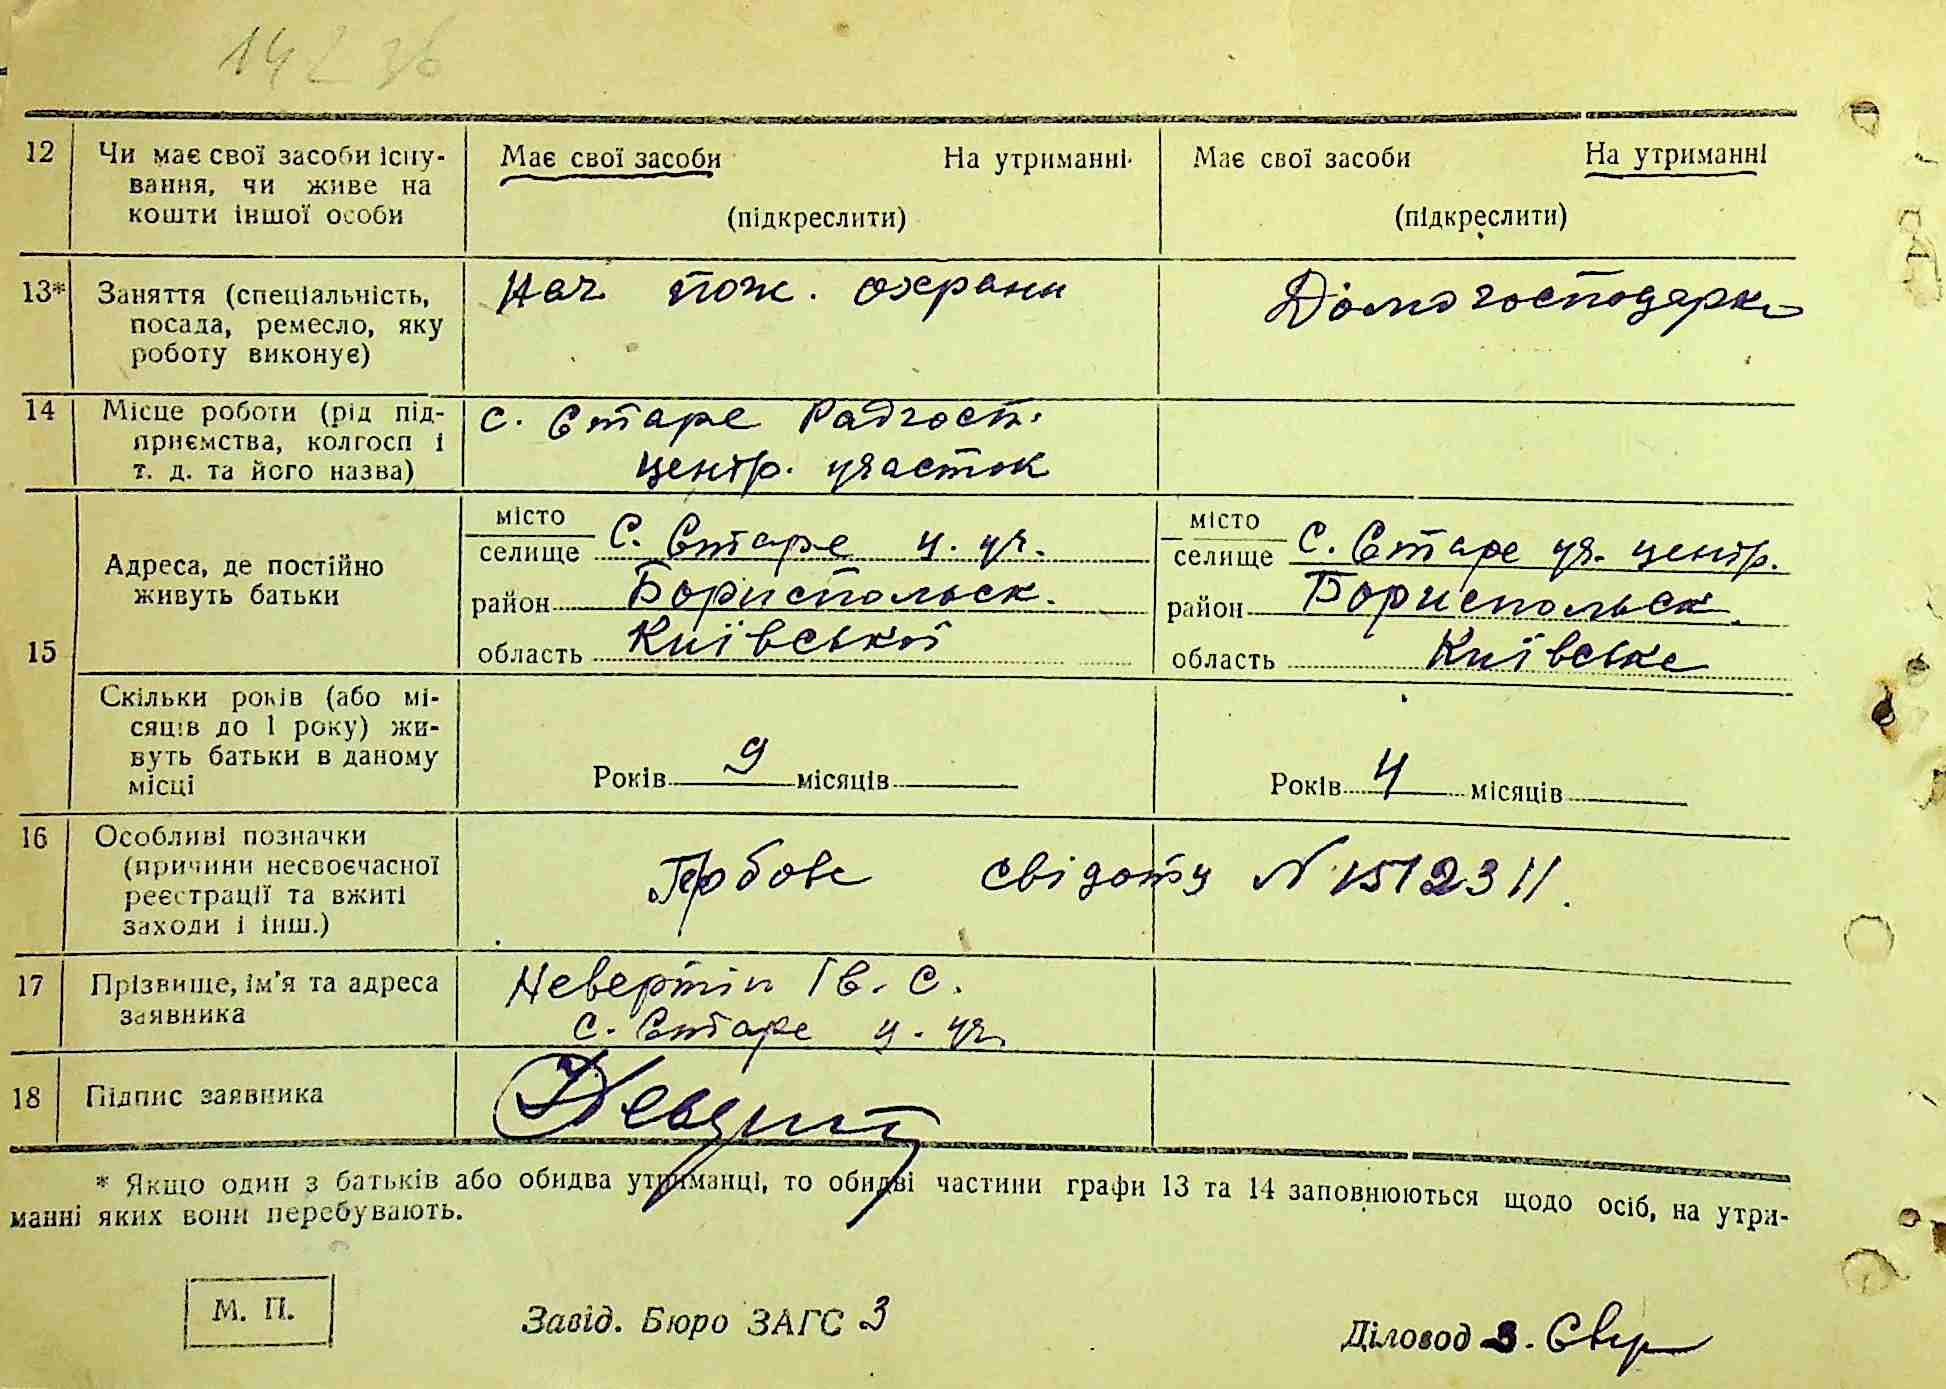 14236
12 Чи має свої засоби існу- Має свої засоби На утриманні Має свої засоби На утриманні
вання, чи живе на
кошти іншої особи (підкреслити) (підкреслити)
13* Заняття (спеціальність, Нач. пож. охрани Домогосподарка
посада, ремесло, яку
роботу виконує)
14 Місце роботи (рід під- с. Старе Радгосп.
приємства, колгосп і центр. участок
т. д. та його назва)
15 Адреса, де постійно
живуть батьки
місто
селище С. Старе ц. уч.
район Бориспольск.
область Київської
місто
селище С. Старе уч. центр.
район Бориспольск.
область Київське
Скільки років (або мі-
сяців до 1 року) жи-
вуть батьки в даному
місці
Років 9 місяців
Років 4 місяців
16 Особливі позначки
(причини несвоєчасної Гербове свідоцт N 1512311.
реєстрації та вжиті
заходи і інш.)
17 Прізвище, ім'я та адреса Ів. С.
заявника с. Старе ц. уч.
18 Підпис заявника
* Якщо один з батьків або обидва утриманці, то обидві частини графи 13 та 14 заповнюються щодо осіб, на утри-
манні яких вони перебувають.
М. П. Завід. Бюро ЗАГС З Діловод З.